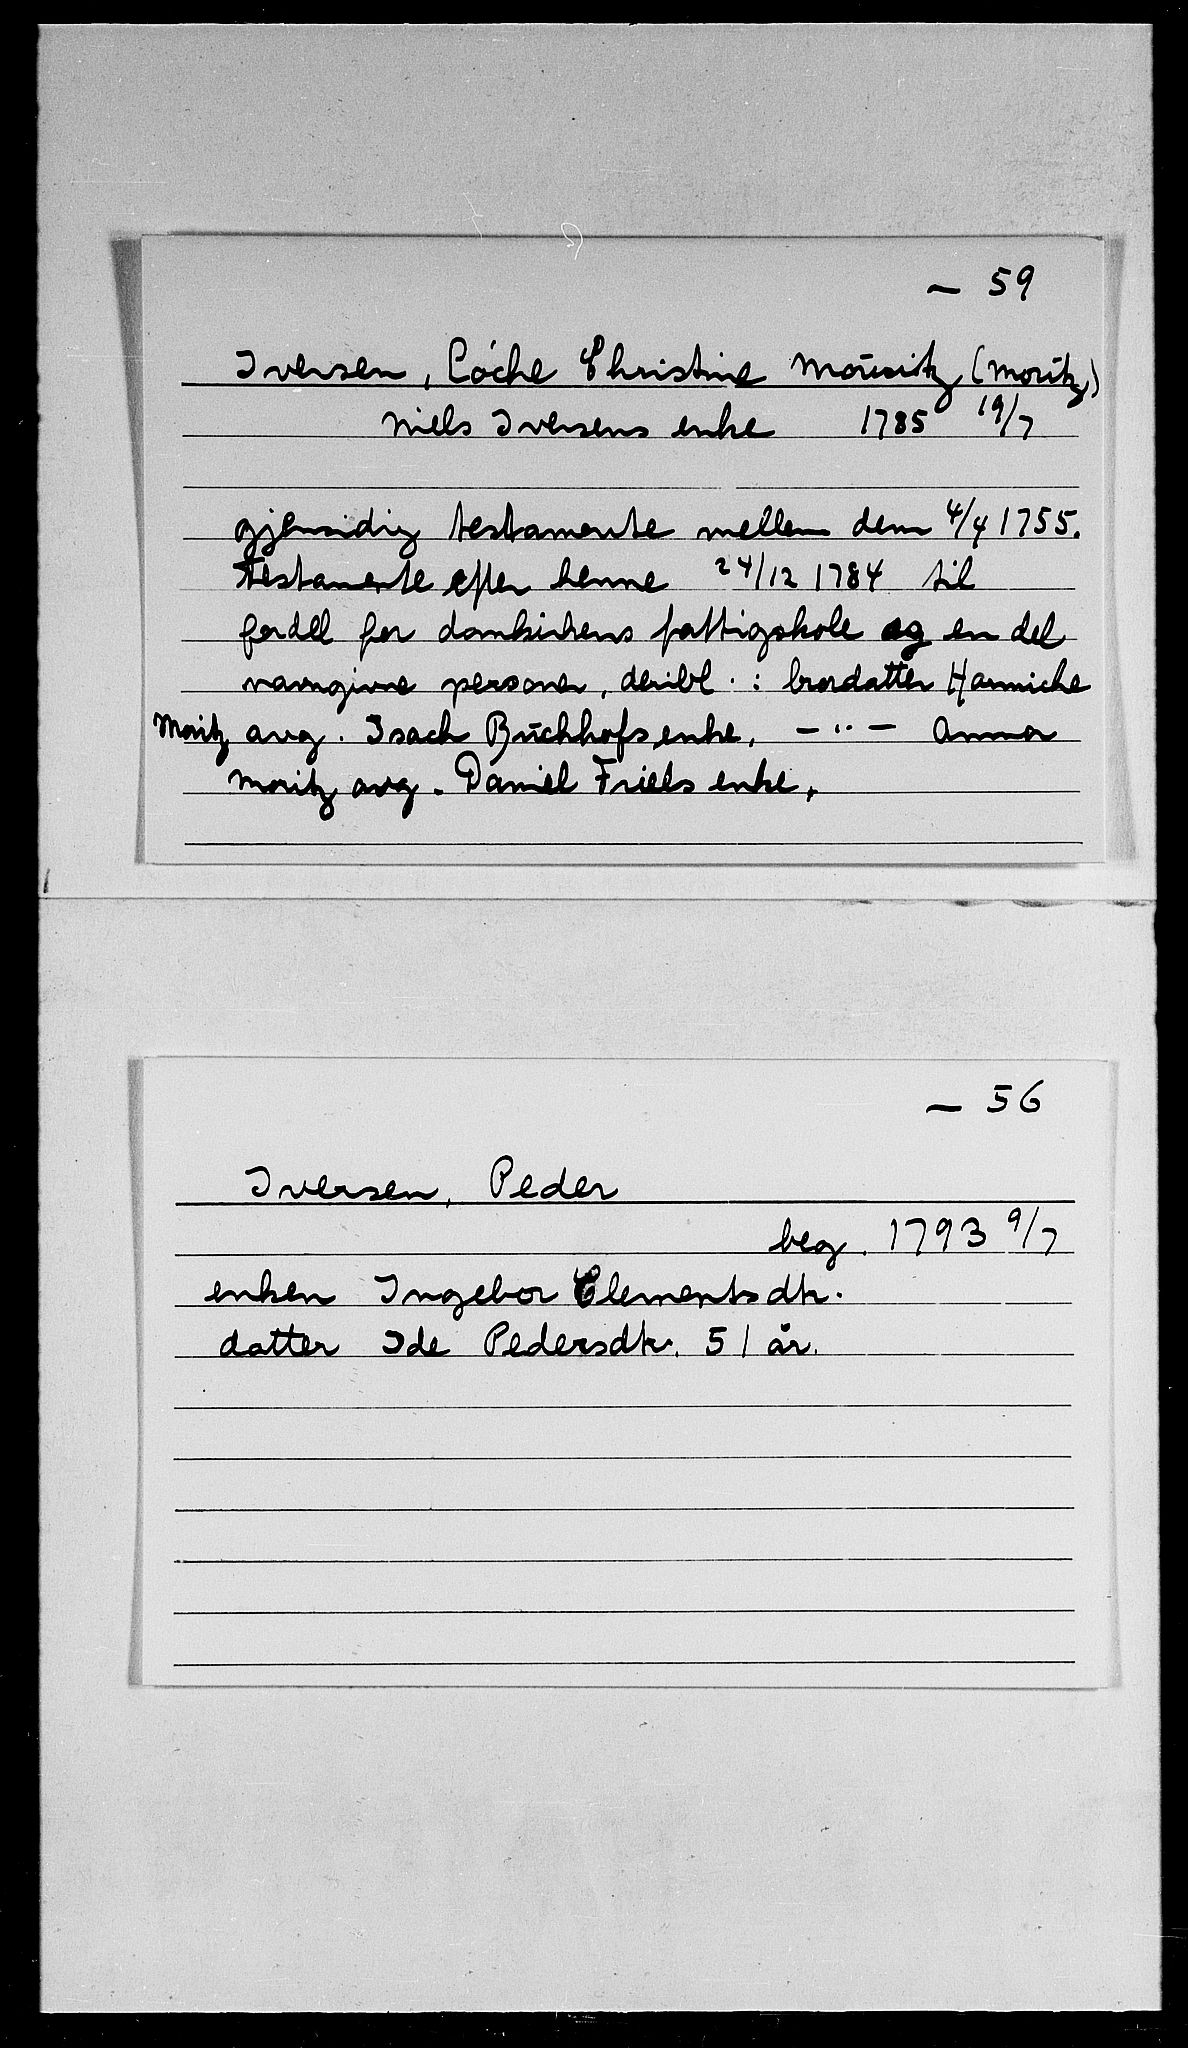 — 59
Iversen, Cóche Christine Mouritz (Moritz)
Niels Iversens enke 1785 19/7
gjensidig testamente mellem dem 4/4 1755.
Testamente efter henne 24/12 1784 til
fordel for domkirkens fattigskole og en del
navngivne personer, deribl.: brordatter Hanniche
Moritz avg. Isach Büchhofs enke, — " — Anna
Moritz avg. Daniel Friels enke.
— 56
Iversen, Peder
beg. 1793 9/7
enken Ingebor Clementsdtr.
datter Ide Pedersdtr. 51 år.